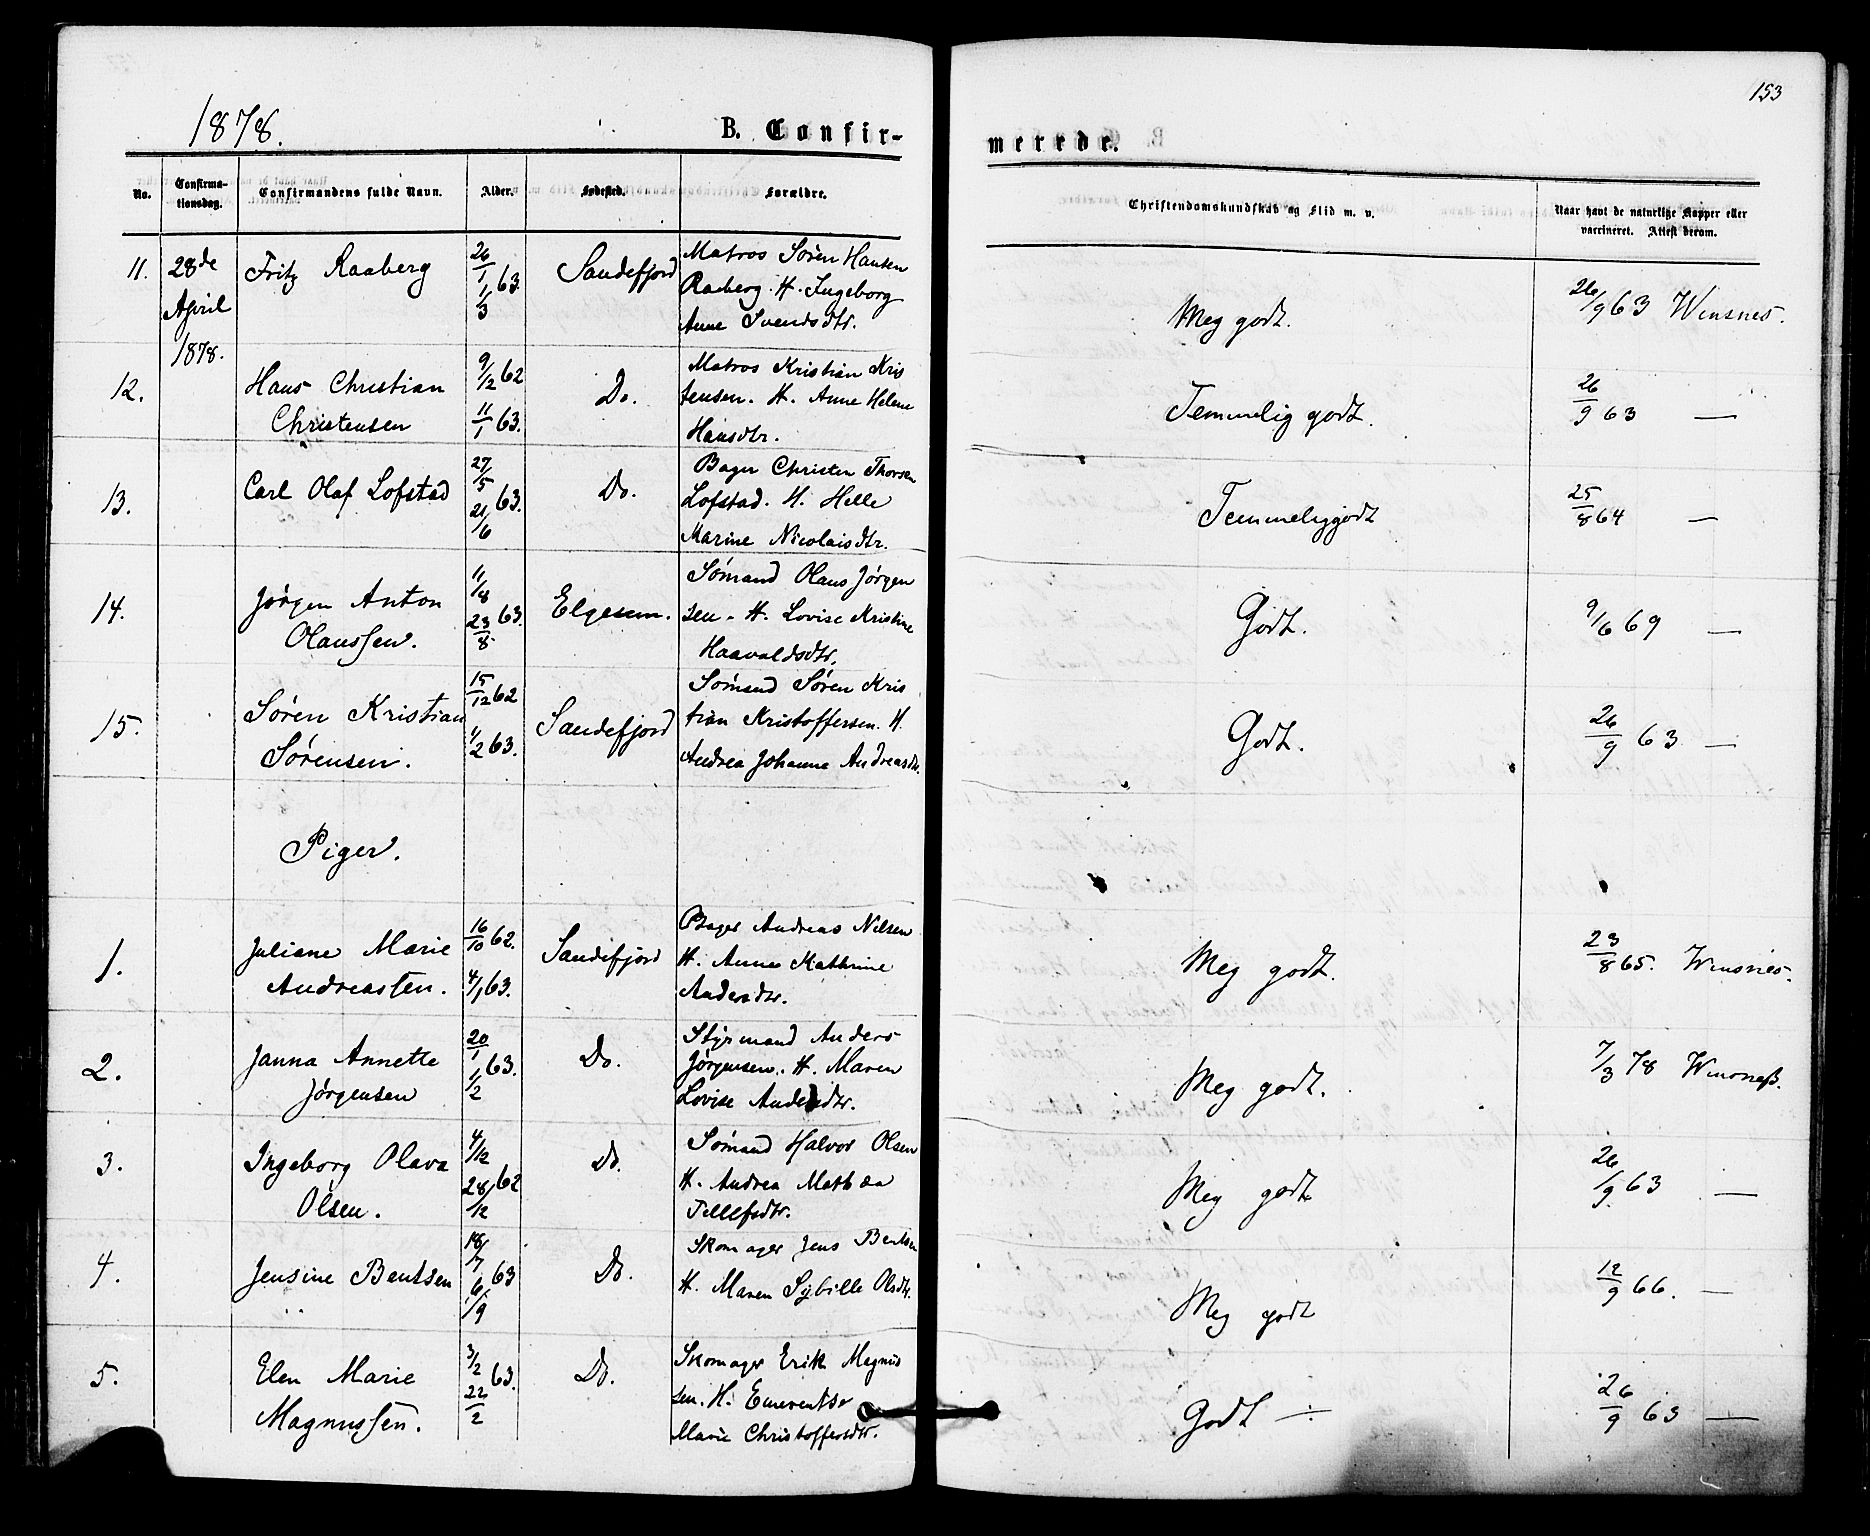 153
1878.
B. Confir-
merede.
No.
Confirma-
tionsdag.
Confirmandens fulde Navn.
Alder.
Fødested.
Forældre.
Christendomskundskab og Flid m. v.
Naar havt de naturlige Kopper eller
vaccineret. Attest derom.
11.
28de
April
1878.
Fritz Raaberg
26/1 63.
1/3
Sandefjord
Matros Søren Hansen
Raaberg. H. Ingeborg
Anne Svendsdtr.
Meg godt.
26/9 63 Winsnes.
12.
Hans Christian
Christensen
9/12 62
11/1 63.
Do.
Matros Kristian Kris
tensen. H. Anne Helene
Hansdtr.
Temmelig godt.
26/9 63 —
13.
Carl Olaf Lofstad
27/5
21/6 63.
Do.
Bager Christen Thorsen
Lofstad. H. Helle
Marine Nicolaisdtr.
Temmeliggodt
25/8 64 —
14.
Jørgen Anton
Olaussen.
11/8
23/8 63.
Elgesem.
Sømand Olaus Jørgen
sen. H. Lovise Kristine
Haavaldsdtr.
Godt.
9/6 69 —
15.
Søren Kristian
Sørensen.
15/12 62
1/2 63.
Sandefjord
Sømand Søren Kris
tian Kristoffersen. H.
Andrea Johanne Andreasdtr.
Godt.
26/9 63 —
Piger.
1.
Juliane Marie
Andreassen.
16/10 62.
4/1 63.
Sandefjord
Bager Andreas Nilsen
H. Anne Kathrine
Andersdtr.
Meg godt.
23/8 65. Winsnes.
2.
Janna Annette
Jørgensen
20/1 63.
1/2
Do.
Styrmand Anders
Jørgensen. H. Maren
Lovise Andersdtr.
Meg godt.
7/3 78 Winsness.
3.
Ingeborg Olava
Olsen.
4/12
28/12 62
Do.
Sømand Halvor Olsen
H. Andrea Mathea
Tellefsdtr.
Meg godt
26/9 63 —
4.
Jensine Bentsen
18/7
6/9 63
Do.
Skomager Jens Bentsen
H. Maren Sybille Olsdtr.
Meg godt
12/9 66. —
5.
Elen Marie
Magnussen.
3/2 63.
22/2
Do.
Skomager Erik Magnus
sen. H.
Marie Christoffersdtr.
Godt ÷
26/9 63 —